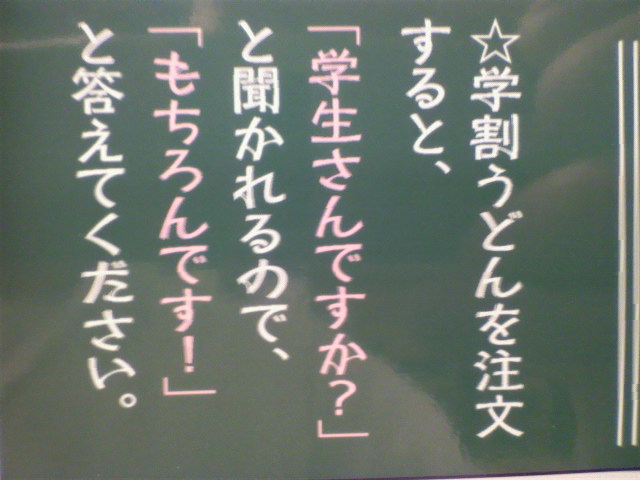 ☆学割うどんを注文
すると、
「学生さんですか？」
と聞かれるので、
「もちろんです！」
と答えてください。